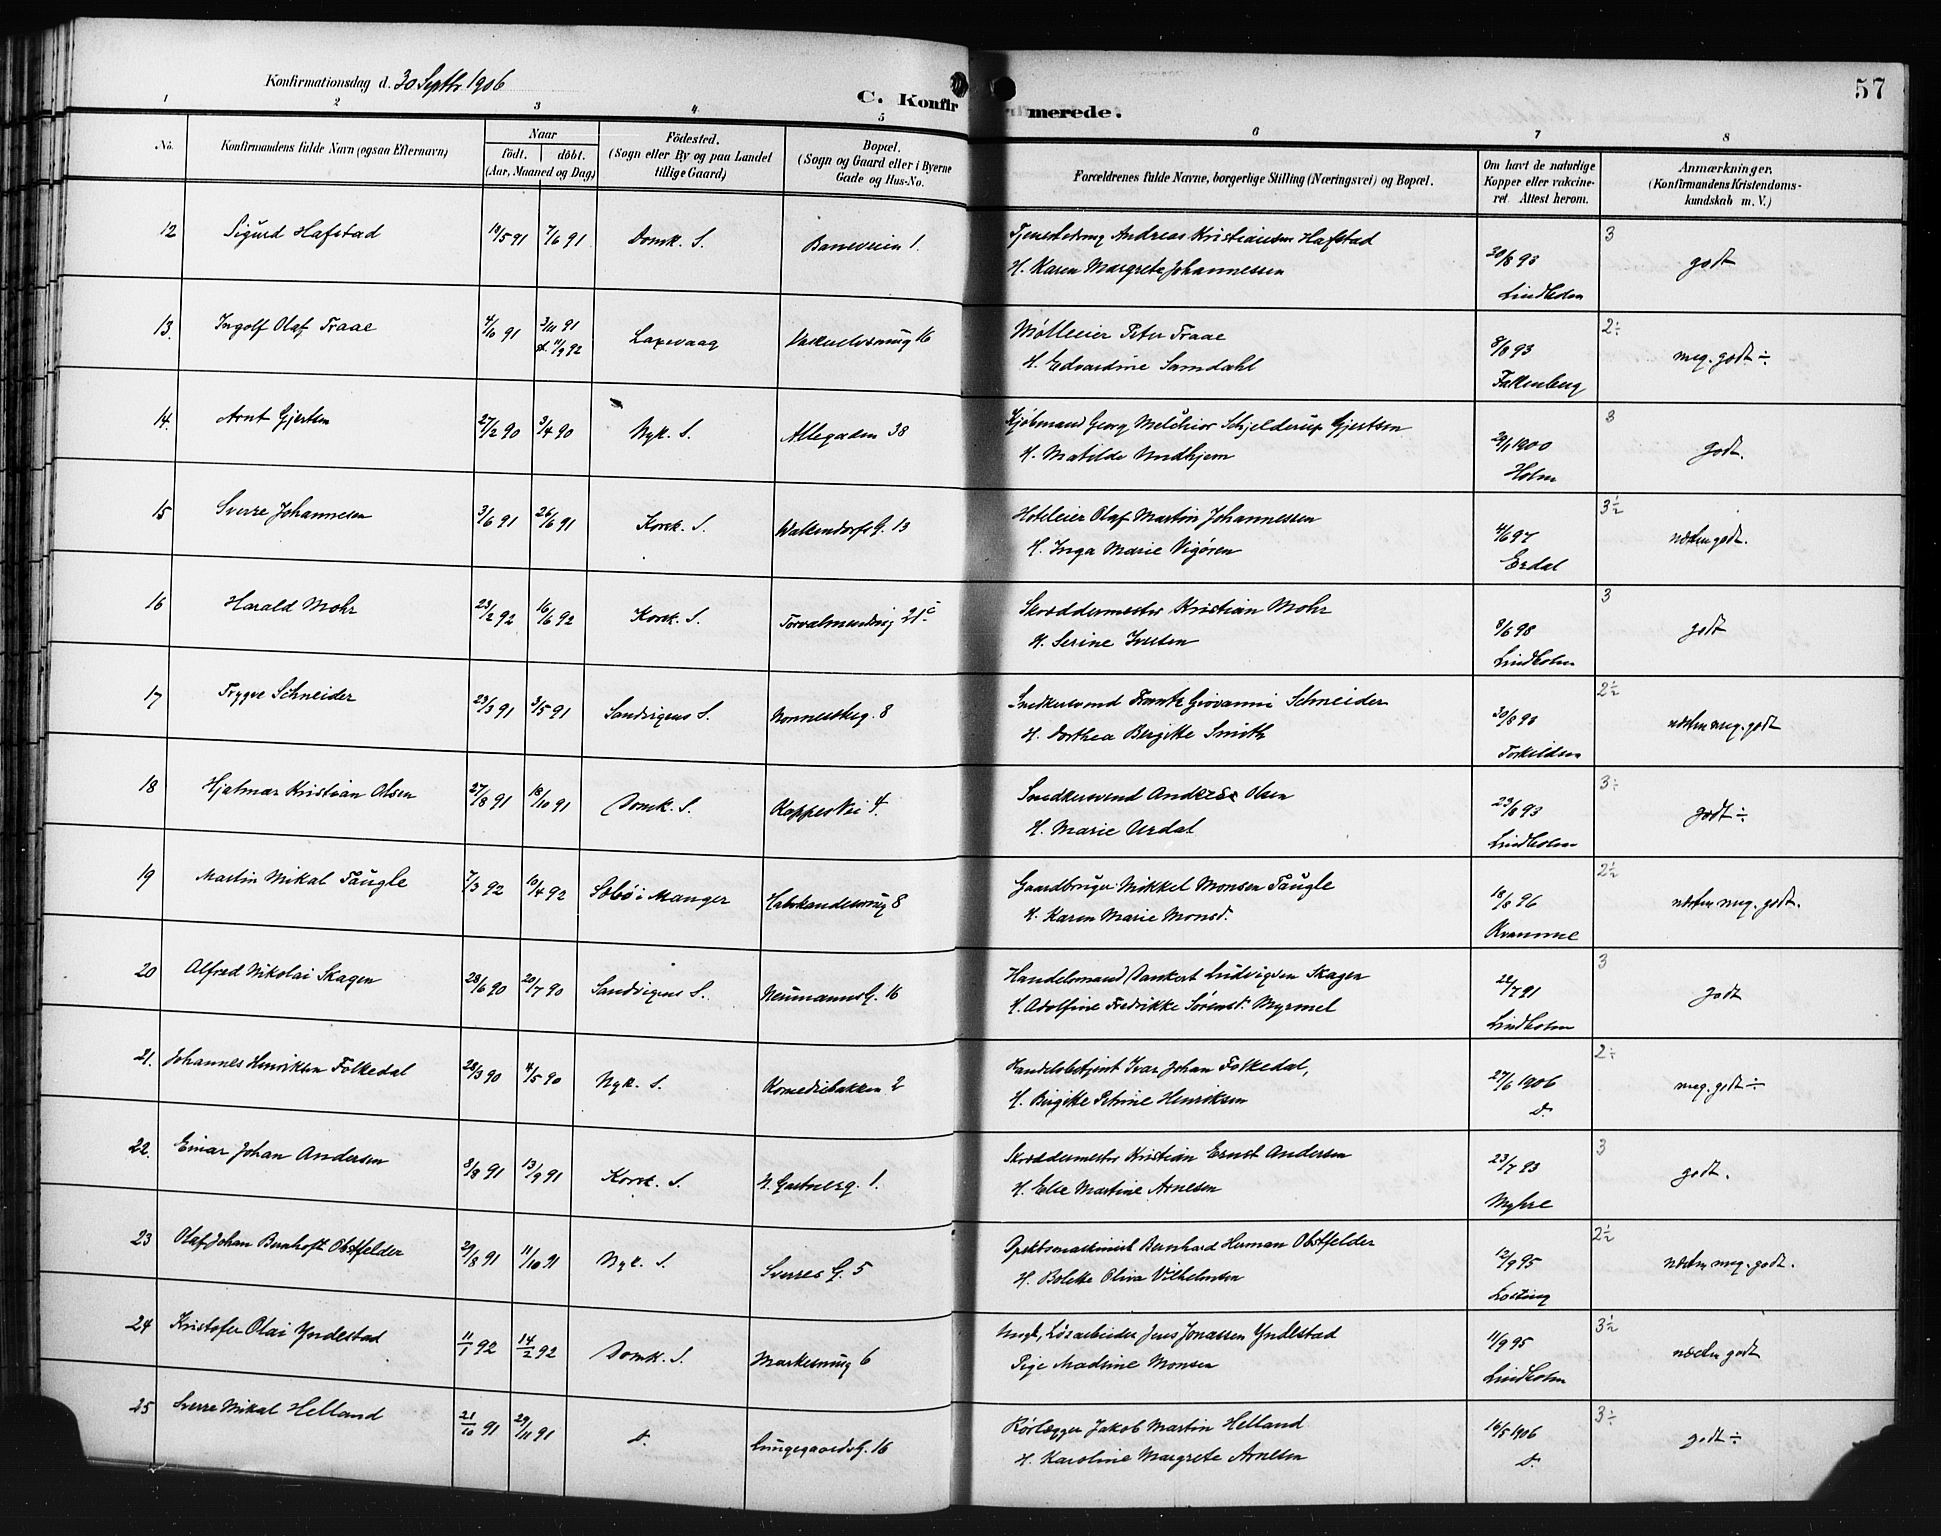 57
Konfirmationsdag d. 30 Septbr. 1906
C. Konfirmerede.
1 2 3 4 5 6 7 8
No. | Konfirmandens fulde Navn (ogsaa Efternavn) | Naar födt. | döbt. (Aar, Maaned og Dag) | Födested. (Sogn eller By og paa Landet tillige Gaard) | Bopæl. (Sogn og Gaard eller i Byerne Gade og Hus-No. | Forældrenes fulde Navne, borgerlige Stilling (Næringsvei) og Bopæl. | Om havt de naturlige Kopper eller vakcineret. Attest herom. | Anmærkninger. (Konfirmandens Kristendomskundskab m. V.)
12 Sigurd Hafstad 19/5 91 7/6 91 Domk. S. Baneveien 1. Tjenestedreng Andreas Kristiansen Hafstad 3
H. Karen Margrete Johannessen 30/8 93 Lindholm godt
13. Ingolf Olaf Traae 4/10 91 3/11 91 11/9 92 Laxevaag 16 Mølleier Peter Traae 2÷
H. Edvardine Samdahl 8/8 93 Falkenberg meg. godt ÷
14. Arnt Gjertsen 27/2 90 3/4 90 Nyk. S. Allegaden 38 Kjøbmand Georg Melchior Schjelderup Gjertsen 3
H. Matilde Undhjem 1900 Holm godt.
15 Sverre Johannesen 3/6 91 26/6 91 Korsk. S. Walkendorfs G. 13 Hoteleier Olaf Martin Johannessen 3½
H. Inga Marie Vigøren 4/6 97 Erdal næsten godt.
16 Harald Mohr 23/2 92 16/6 92 Korsk. S. Torvalmending 21c Skræddermester Kristian Mohr 3
H. Serine Iversen 8/6 98 Lindholm godt
17 Trygve Schneider 23/3 91 3/5 91 Sandvigens S. Nonnesterg. 8 Snedkersvend Frantz Giovanni Schneider 2½
H. Dorthea Bergitte Smith 30/8 98 Torkildsen næsten meg. godt
18 Hjalmar Kristian Olsen 27/8 91 18/10 91 Domk. S. Kappes Vei 4. Snedkersvend Andreas Olsen 3÷
H. Marie Urdal 23/8 93 Lindholm godt ÷
19 Martin Mikal Taugle 7/3 92 10/4 92 Sæbø i Manger 8 Gaardbruger Mikkel Monsen Taugle 2½
H. Karen Marie Monsd. 18/8 96 Kvamme næsten meg. godt.
20 Alfred Nikolai Skagen 28/6 90 20/7 90 Sandvigens S. Neumanns G. 16 Handelsmand Dankert Ludvigsen Skagen 3
H. Adolfine Fredrikke Sørensd. Myrmel 22/7 91 Lindholm godt
21. Johannes Henriksen Folkedal 28/3 90 4/5 90 Nyk. S. Komediebakken 2 Handelsbetjent Ivar Johan Folkedal, 2÷
H. Bergitte Petrine Henriksen 27/6 1906 D. meg. godt ÷
22. Einar Johan Andersen 8/8 91 13/9 91 Korsk. S. N. Gartnerg. 1. Skræddermester Kristian Ernst Andersen 3
H. Else Martine Arnesen 23/7 93 Myhre godt.
23 Olaf Johan Bernhoft Obstfelder 29/8 91 11/10 91 Nyk. S. Sverres G. 5 Bernhard Herman Obstfelder 2½
H. Bolette Oliva Vilhelmsen 12/9 95 næsten meg. godt.
24 Kristofer Olai Yndestad 11/1 92 14/2 92 Domk. S. Markeveien 6 Ungk., Løsarbeider Jens Jonassen Yndestad 3½
Pige Madsine Monsen 11/9 95 Lindholm næsten godt
25 Sverre Mikal Helland 21/10 91 29/11 91 D. Lungegaards G. 16 Rørlægger Jakob Martin Helland 3÷
H. Karoline Margrete Arnesen 16/5 1906 D. godt ÷